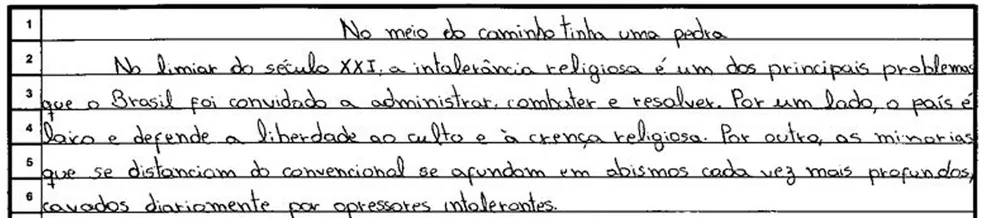 1 No meio do caminho tinha uma pedra
2 No limiar do século XXI, a intolerância religiosa é um dos principais problemas
3 que o Brasil foi convidado a administrar, combater e resolver. Por um lado, o país é
4 laico e defende a liberdade ao culto e à crença religiosa. Por outro, as minorias
5 que se distanciam do convencional se afundam em abismos cada vez mais profundos,
6 cavados diariamente por opressores intolerantes.